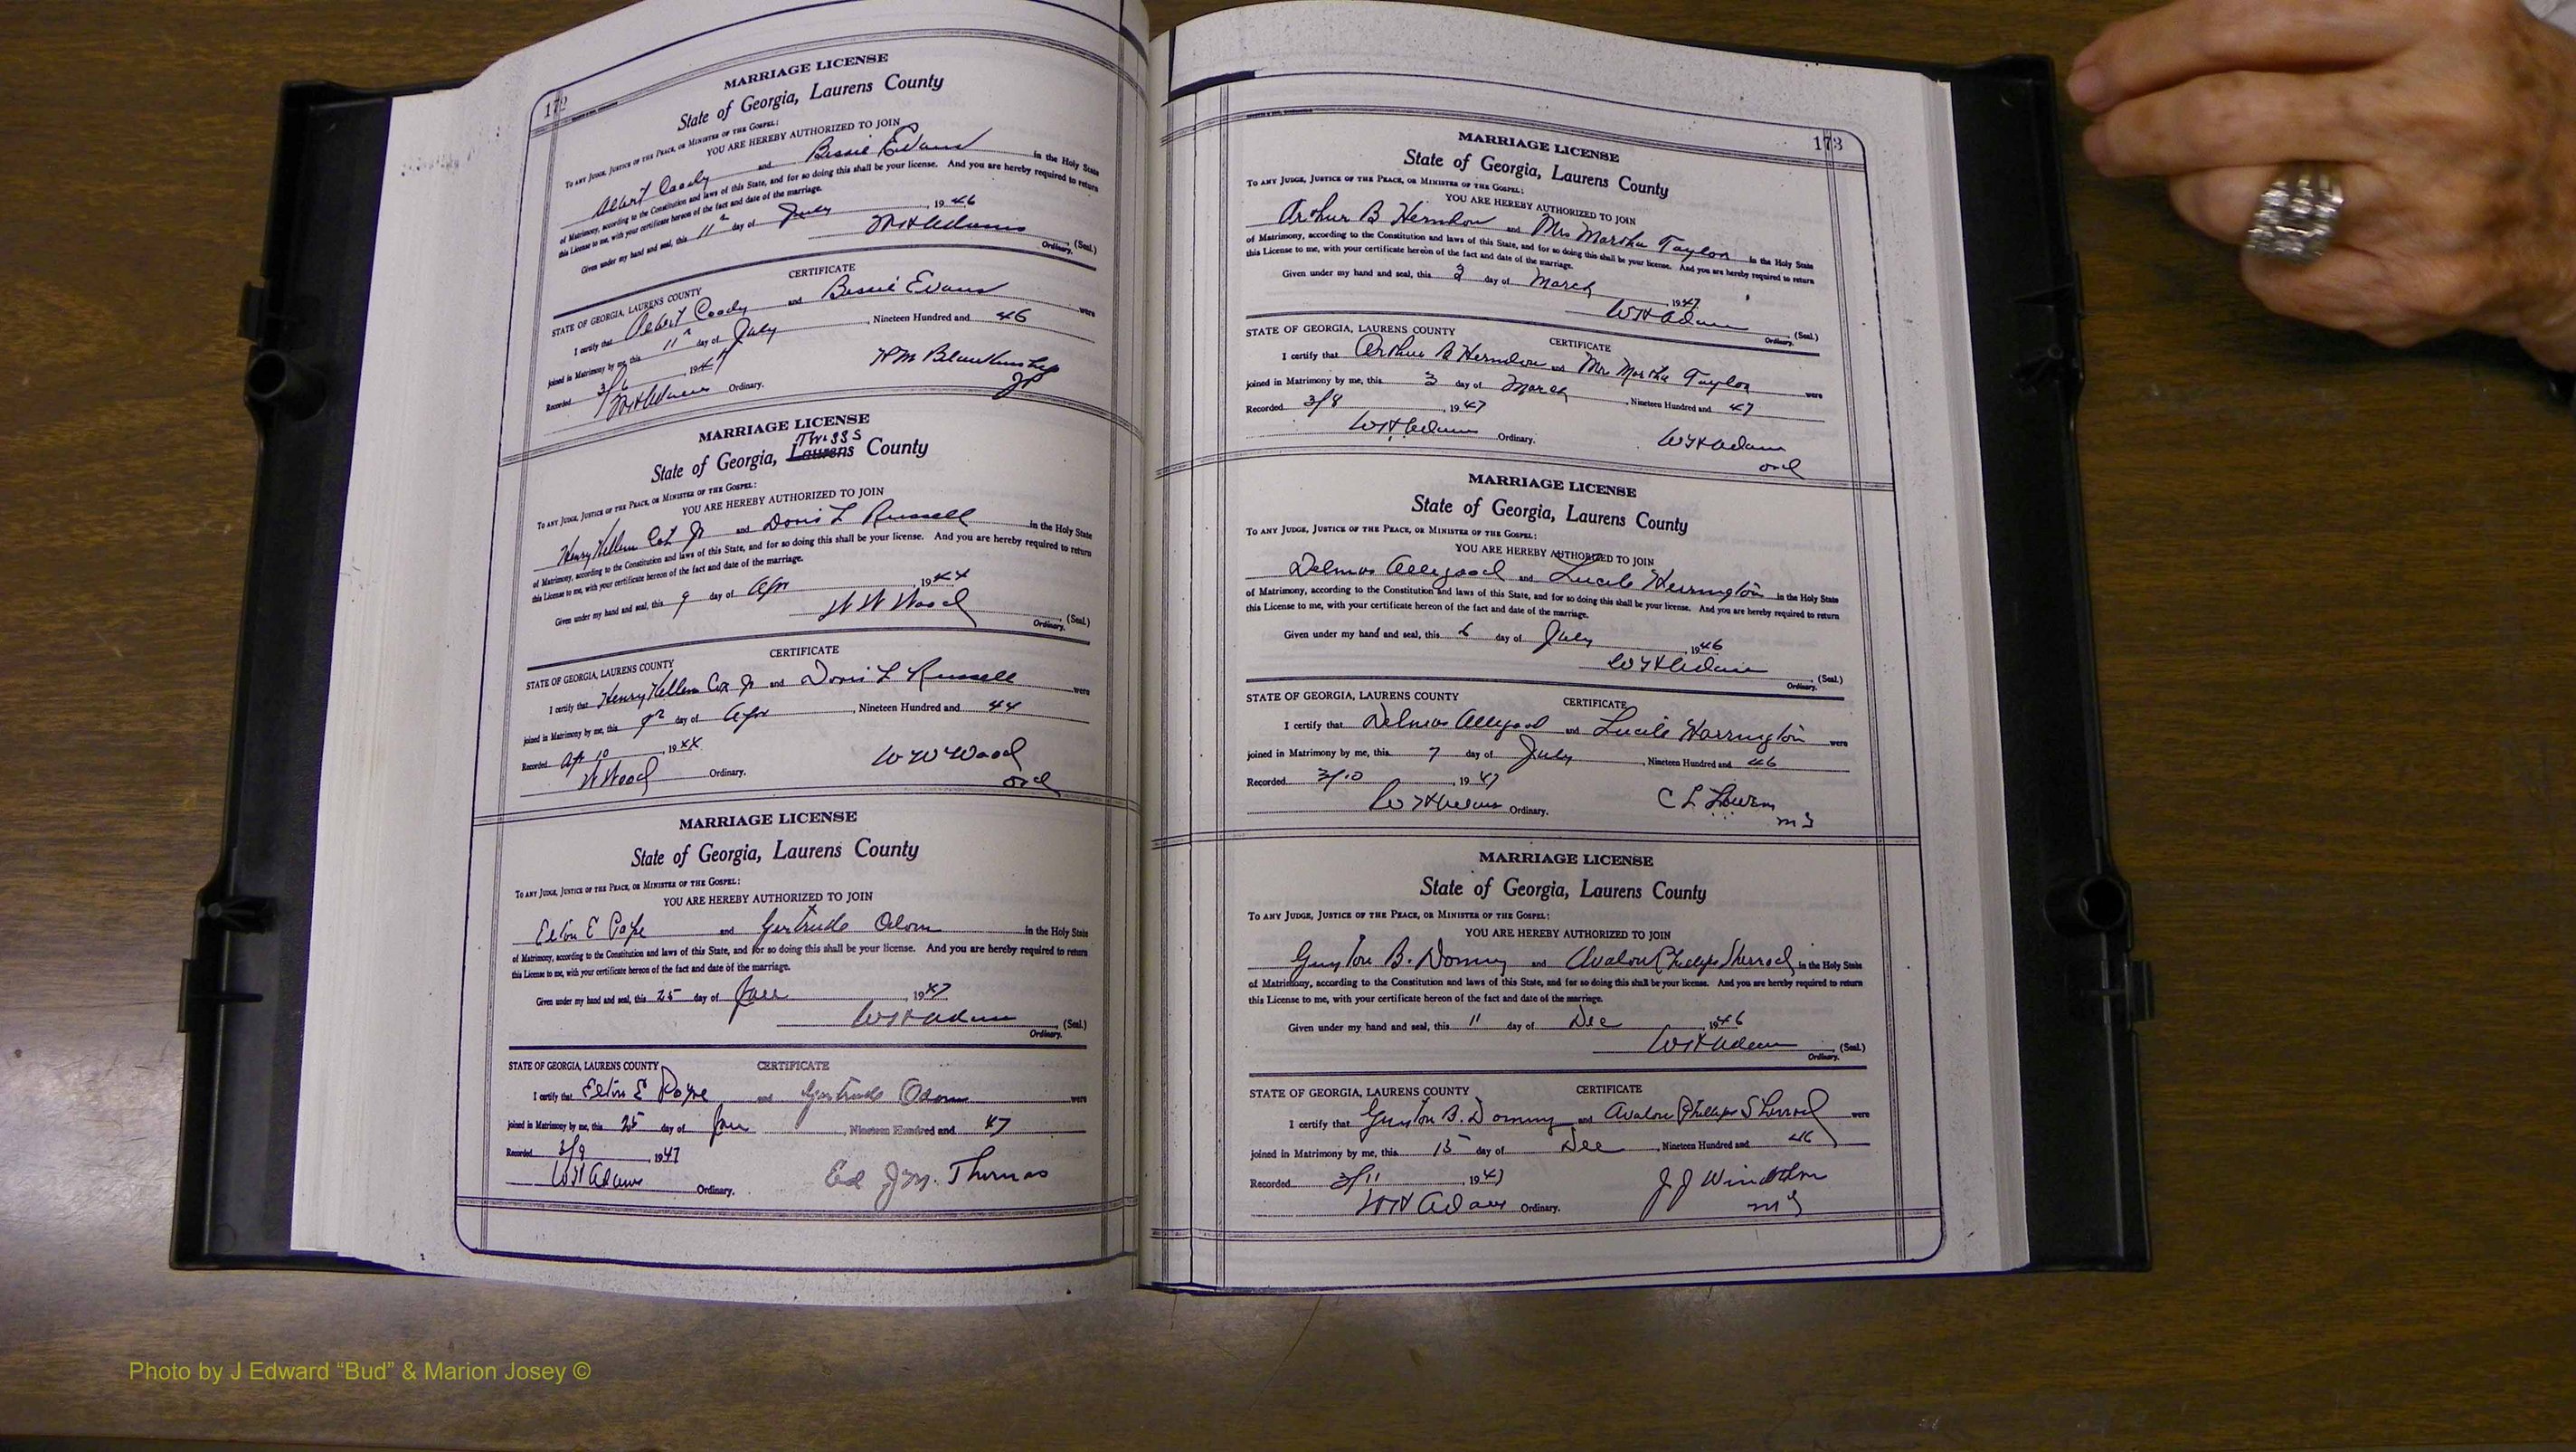 172
MARRIAGE LICENSE
State of Georgia, Laurens County
TO ANY JUDGE, JUSTICE OF THE PEACE, OR MINISTER OF THE GOSPEL:
YOU ARE HEREBY AUTHORIZED TO JOIN
Albert Coody and Bessie Evans in the Holy State
of Matrimony, according to the Constitution and laws of this State, and for so doing this shall be your license. And you are hereby required to return
this License to me, with your certificate hereon of the fact and date of the marriage.
Given under my hand and seal, this 11 day of July, 1946
WH Adams (Seal.)
Ordinary.
STATE OF GEORGIA, LAURENS COUNTY CERTIFICATE
I certify that Albert Coody and Bessie Evans were
joined in Matrimony by me, this 11 day of July, Nineteen Hundred and 46
Recorded 3/6, 1947
WH Adams Ordinary. JP
MARRIAGE LICENSE
Twiggs
State of Georgia, Laurens County
TO ANY JUDGE, JUSTICE OF THE PEACE, OR MINISTER OF THE GOSPEL:
YOU ARE HEREBY AUTHORIZED TO JOIN
Henry Kellem Cox Jr and Doris L Russell in the Holy State
of Matrimony, according to the Constitution and laws of this State, and for so doing this shall be your license. And you are hereby required to return
this License to me, with your certificate hereon of the fact and date of the marriage.
Given under my hand and seal, this 9 day of Apr, 1944
W W Wood (Seal.)
Ordinary.
STATE OF GEORGIA, LAURENS COUNTY CERTIFICATE
I certify that Henry Kellem Cox Jr and Doris L Russell were
joined in Matrimony by me, this 9 day of Apr, Nineteen Hundred and 44
Recorded Ap 10, 1944
W Wood Ordinary. W W Wood
ord
MARRIAGE LICENSE
State of Georgia, Laurens County
TO ANY JUDGE, JUSTICE OF THE PEACE, OR MINISTER OF THE GOSPEL:
YOU ARE HEREBY AUTHORIZED TO JOIN
Elton E Pope and Gertrude Odom in the Holy State
of Matrimony, according to the Constitution and laws of this State, and for so doing this shall be your license. And you are hereby required to return
this License to me, with your certificate hereon of the fact and date of the marriage.
Given under my hand and seal, this 25 day of Jan, 1947
WH Adams (Seal.)
Ordinary.
STATE OF GEORGIA, LAURENS COUNTY CERTIFICATE
I certify that Elton E Pope and Gertrude Odom were
joined in Matrimony by me, this 25 day of Jan, Nineteen Hundred and 47
Recorded 3/9, 1947
WH Adams Ordinary. Ed J.M. Thomas
173
MARRIAGE LICENSE
State of Georgia, Laurens County
TO ANY JUDGE, JUSTICE OF THE PEACE, OR MINISTER OF THE GOSPEL:
YOU ARE HEREBY AUTHORIZED TO JOIN
Arthur B Herndon and Mrs Martha Taylor in the Holy State
of Matrimony, according to the Constitution and laws of this State, and for so doing this shall be your license. And you are hereby required to return
this License to me, with your certificate hereon of the fact and date of the marriage.
Given under my hand and seal, this 3 day of March, 1947
WH Adams (Seal.)
Ordinary.
STATE OF GEORGIA, LAURENS COUNTY CERTIFICATE
I certify that Arthur B Herndon and Mrs Martha Taylor were
joined in Matrimony by me, this 3 day of March, Nineteen Hundred and 47
Recorded 3/8, 1947
WH Adams Ordinary. WH Adams
ord
MARRIAGE LICENSE
State of Georgia, Laurens County
TO ANY JUDGE, JUSTICE OF THE PEACE, OR MINISTER OF THE GOSPEL:
YOU ARE HEREBY AUTHORIZED TO JOIN
Delmas Allegood and Lucile Herrington in the Holy State
of Matrimony, according to the Constitution and laws of this State, and for so doing this shall be your license. And you are hereby required to return
this License to me, with your certificate hereon of the fact and date of the marriage.
Given under my hand and seal, this 6 day of July, 1946
WH Adams (Seal.)
Ordinary.
STATE OF GEORGIA, LAURENS COUNTY CERTIFICATE
I certify that Delmas Allegood and Lucile Harrington were
joined in Matrimony by me, this 7 day of July, Nineteen Hundred and 46
Recorded 3/10, 1947
WH Adams Ordinary. C L
MG
MARRIAGE LICENSE
State of Georgia, Laurens County
TO ANY JUDGE, JUSTICE OF THE PEACE, OR MINISTER OF THE GOSPEL:
YOU ARE HEREBY AUTHORIZED TO JOIN
Guyton B. Dominy and Avalon Phillips Sherrod in the Holy State
of Matrimony, according to the Constitution and laws of this State, and for so doing this shall be your license. And you are hereby required to return
this License to me, with your certificate hereon of the fact and date of the marriage.
Given under my hand and seal, this 11 day of Dec, 1946
WH Adams (Seal.)
Ordinary.
STATE OF GEORGIA, LAURENS COUNTY CERTIFICATE
I certify that Guyton B. Dominy and Avalon Phillips Sherrod were
joined in Matrimony by me, this 15 day of Dec, Nineteen Hundred and 46
Recorded 3/11, 1947
WH Adams Ordinary. J J Windham
MG
Photo by J Edward “Bud” & Marion Josey ©